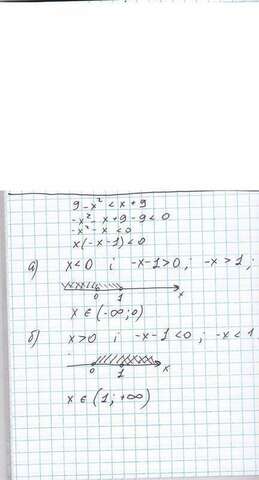 9 - x² < x + 9
-x² - x + 9 - 9 < 0
-x² - x < 0
x(-x - 1) < 0
а) x < 0 і -x - 1 > 0 ; -x > 1 ;
0 1 x
x ∈ (-∞; 0)
б) x > 0 і -x - 1 < 0 ; -x < 1
0 1 x
x ∈ (1; +∞)